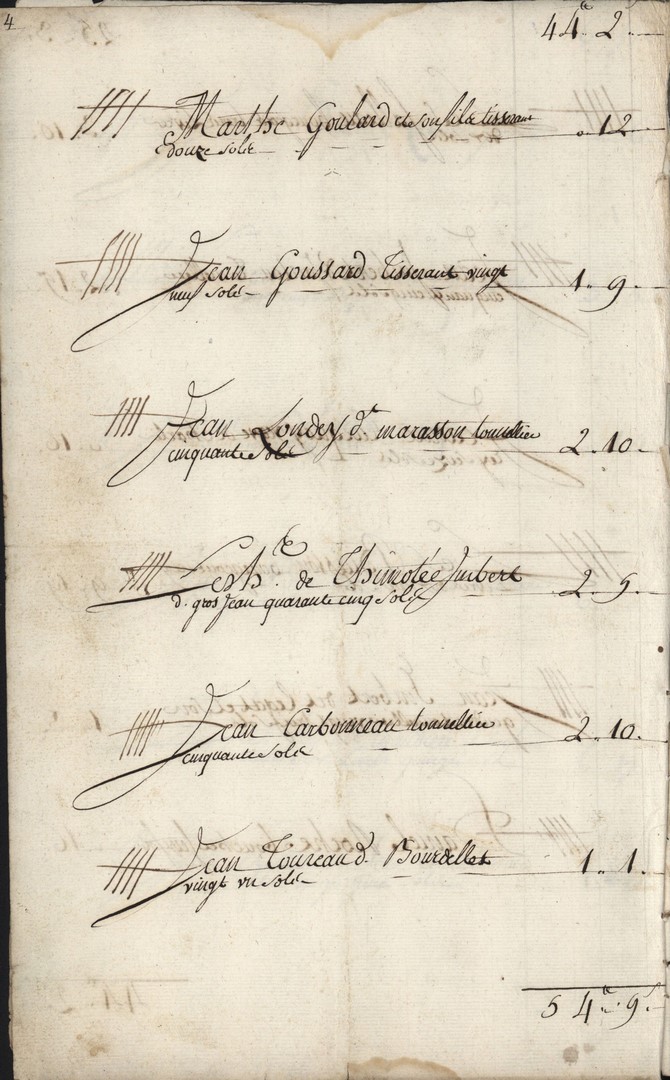 4
44tt 2s
Marthe Goulard et son fils tisserant . 12
douze sols
Jean Goussard tisserant vingt 1.. 9.
neuf sols
Jean Londey d.t marasson tonnellier 2. 10.
cinquante sols
Les h.rs de Thimotée Jmbert 2. 5.
d. gros Jean quarante cinq sols
Jean Carbonneau tonnellier 2. 10.
cinquante sols
Jean Toureau d. Bourdellet 1. 1.
vingt un sols
54tt. 9s.